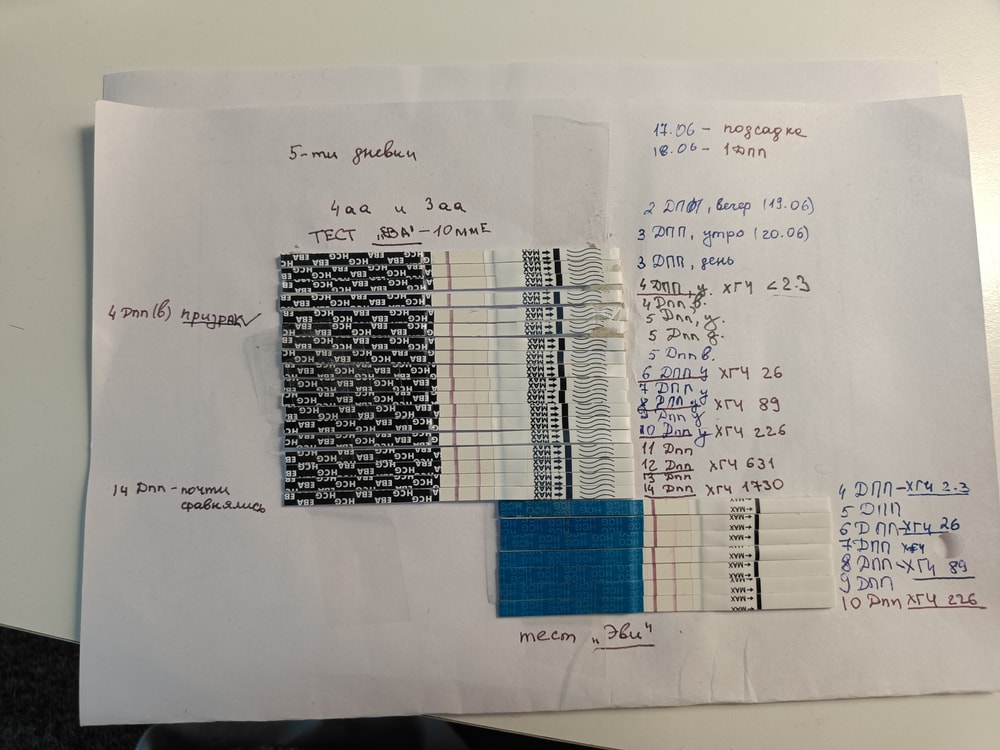 17.06 - подсадка
18.06 - 1 ДПП
5-ти дневки
4аа и 3аа
ТЕСТ "ЕВА" - 10 мМЕ
2 ДПП, вечер (19.06)
3 ДПП, утро (20.06)
3 ДПП, день
4 ДПП, у. ХГЧ <2.3
4 Дпп в.
5 Дпп, у.
5 Дпп д.
5 Дпп в.
6 ДПП у ХГЧ 26
7 ДПП у
8 ДПП у ХГЧ 89
9 ДПП у
10 Дпп у ХГЧ 226
11 Дпп
12 Дпп ХГЧ 631
13 Дпп
14 Дпп ХГЧ 1730
4 Дпп (в) призрак ✓
14 Дпп - почти
сравнялись
HCG EBA HCG EBA HCG EBA
MAX
4 ДПП - ХГЧ 2.3
5 ДПП
6 ДПП - ХГЧ 26
7 ДПП ХГЧ
8 ДПП - ХГЧ 89
9 ДПП
10 Дпп ХГЧ 226
MAX
тест "Эви"